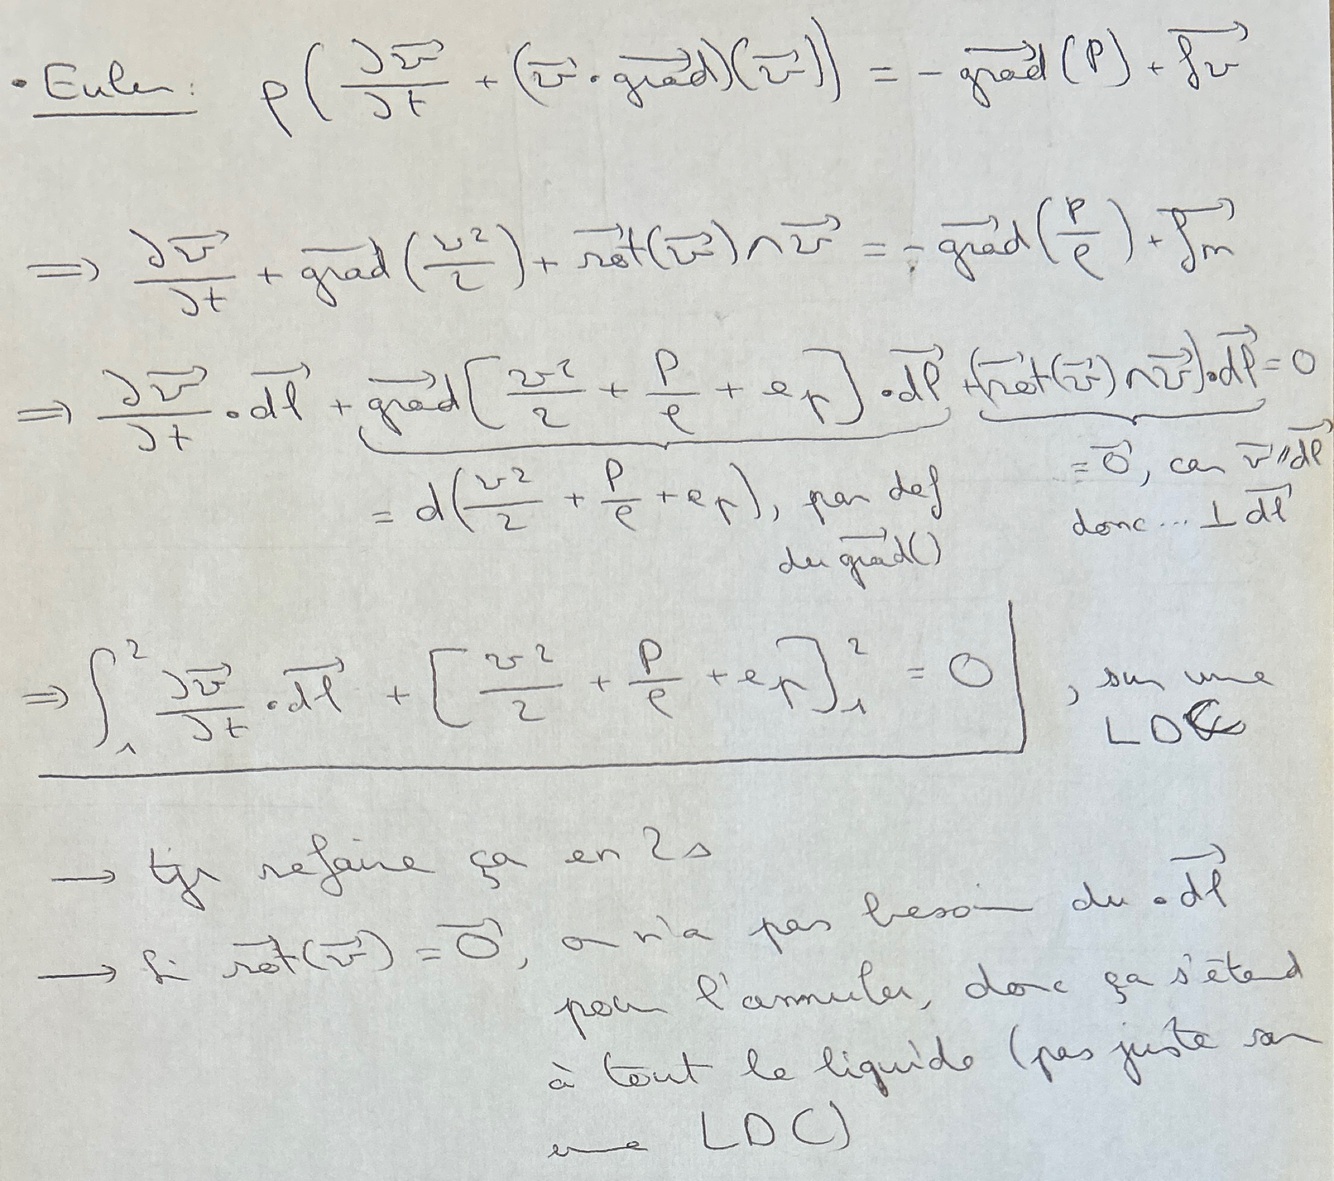 • Euler : ρ(∂v⃗/∂t + (v⃗ · grad⃗)(v⃗)) = - grad⃗(P) + f⃗v
⇒ ∂v⃗/∂t + grad⃗(v²/2) + rot⃗(v⃗) ∧ v⃗ = - grad⃗(P/ρ) + f⃗m
⇒ ∂v⃗/∂t · dl⃗ + grad⃗[v²/2 + P/ρ + ep] · dl⃗ + (rot⃗(v⃗) ∧ v⃗) · dl⃗ = 0
= d(v²/2 + P/ρ + ep), par def
du grad⃗()
= 0⃗, car v⃗ // dl⃗
donc... ⊥ dl⃗
⇒ ∫₁² ∂v⃗/∂t · dl⃗ + [v²/2 + P/ρ + ep]₁² = 0 , sur une
LDC
→ tjr refaire ça en 2s
→ Si rot⃗(v⃗) = 0⃗, on n'a pas besoin du · dl⃗
pour l'annuler, donc ça s'étend
à tout le liquide (pas juste sur
une LDC)